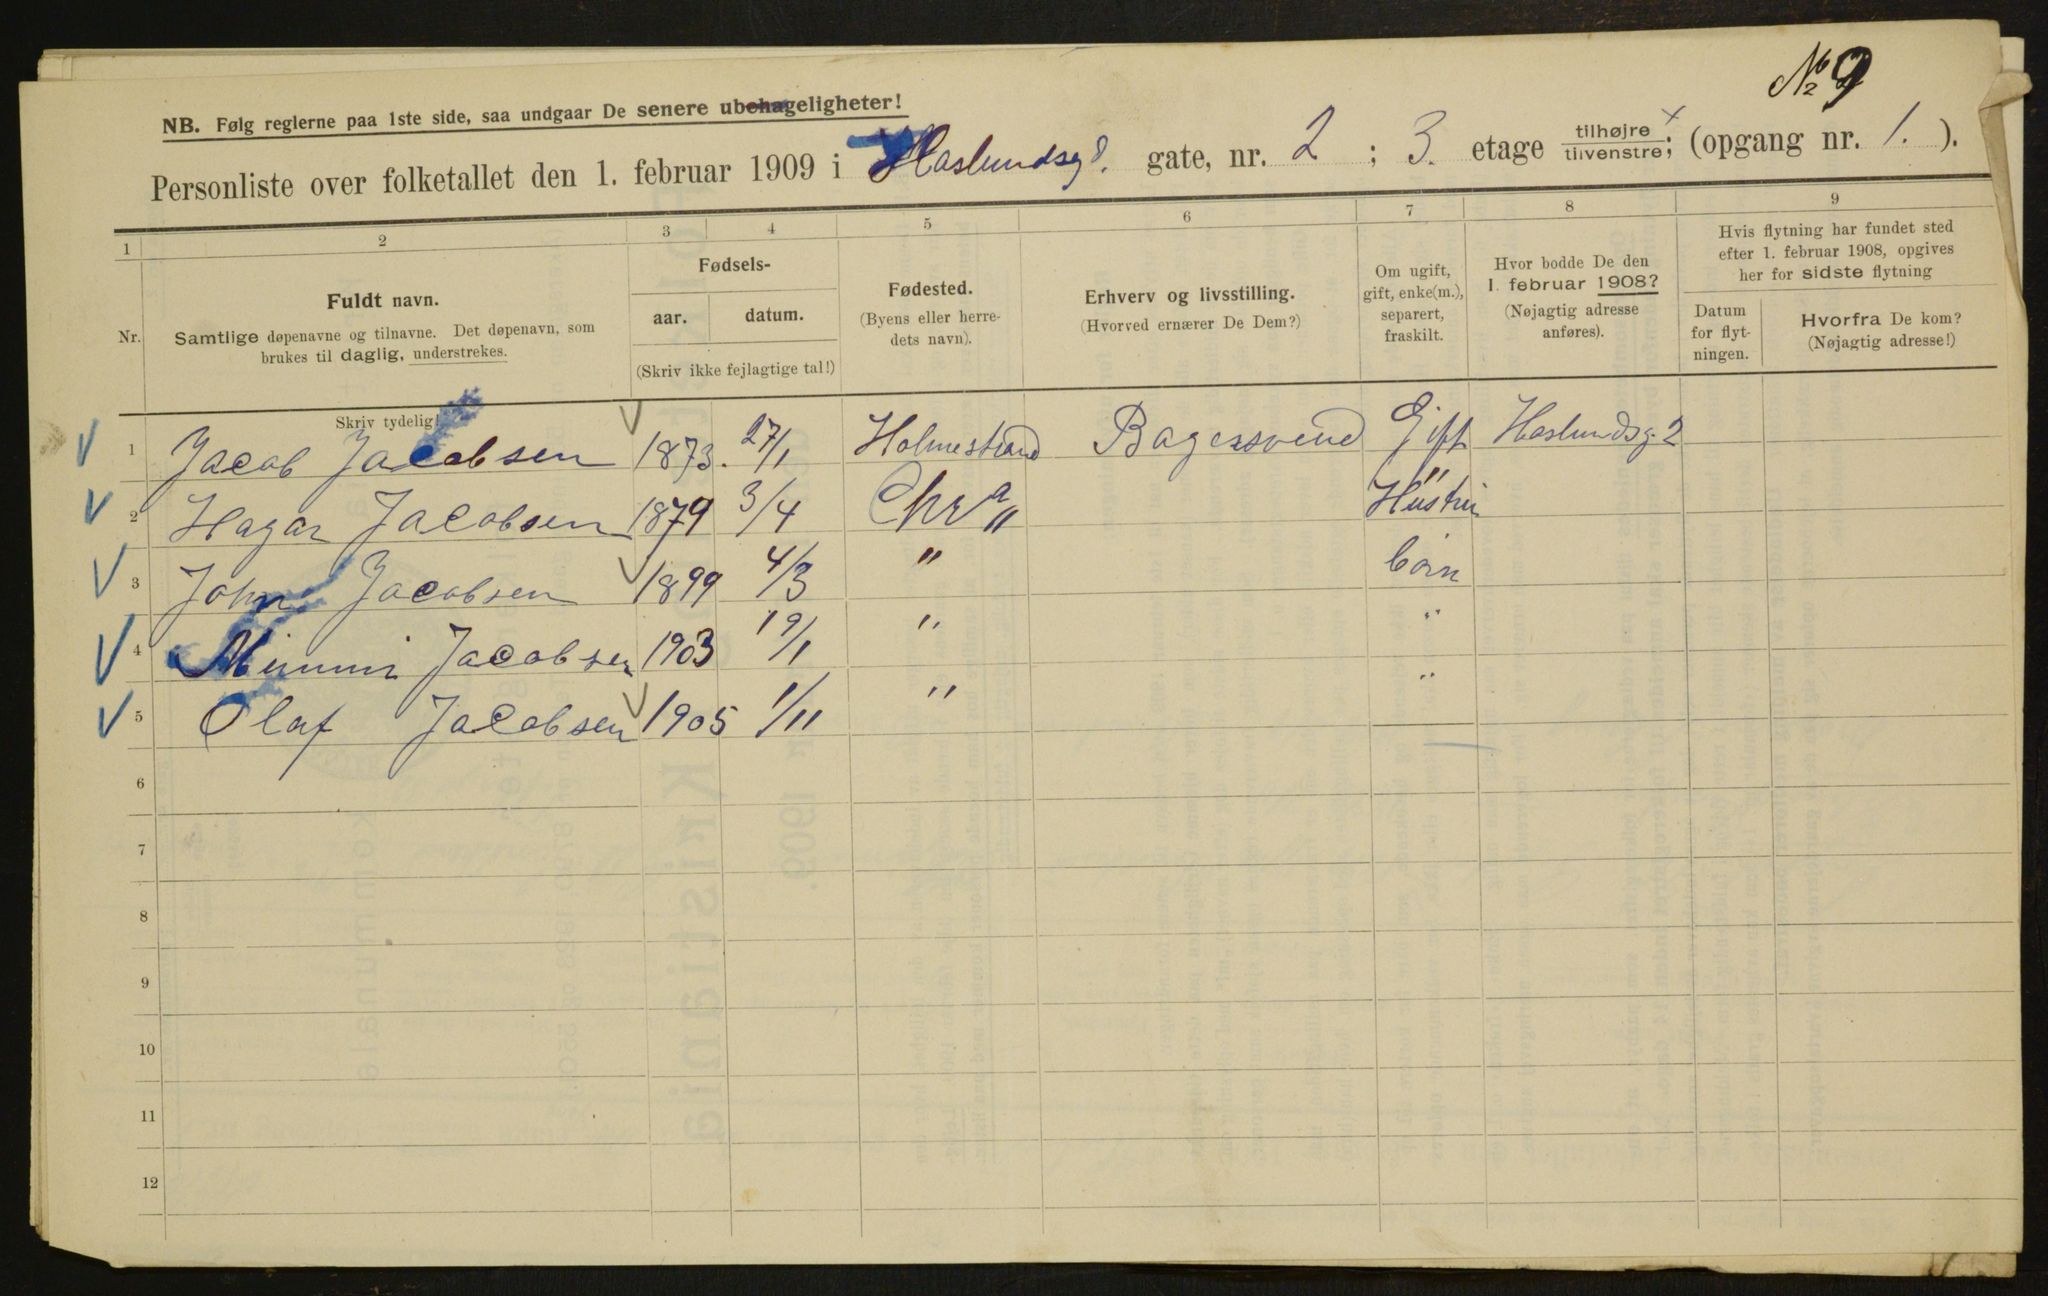 № 9
NB. Følg reglerne paa 1ste side, saa undgaar De senere ubehageligheter!
Personliste over folketallet den 1. februar 1909 i Haslundsg. gate, nr. 2 ; 3. etage tilhøjre / tilvenstre; (opgang nr. 1. ).
1 2 3 4 5 6 7 8 9
Nr.
Fuldt navn.
Samtlige døpenavne og tilnavne. Det døpenavn, som
brukes til daglig, understrekes.
Skriv tydelig!
Fødsels-
aar. datum.
(Skriv ikke fejlagtige tal!)
Fødested.
(Byens eller herre-
dets navn).
Erhverv og livsstilling.
(Hvorved ernærer De Dem?)
Om ugift,
gift, enke(m.),
separert,
fraskilt.
Hvor bodde De den
1. februar 1908?
(Nøjagtig adresse
anføres).
Hvis flytning har fundet sted
efter 1. februar 1908, opgives
her for sidste flytning
Datum
for flyt-
ningen.
Hvorfra De kom?
(Nøjagtig adresse!)
1 Jacob Jacobsen 1873. 27/1 Holmestrand Bagersvend Gift Haslundsg. 2
2 Hagar Jacobsen 1879 3/4 Chr a " Hustru
3 John Jacobsen 1899 4/3 " börn
4 Mimmi Jacobsen 1903 19/1 " "
5 Olaf Jacobsen 1905 1/11 " "
6
7
8
9
10
11
12